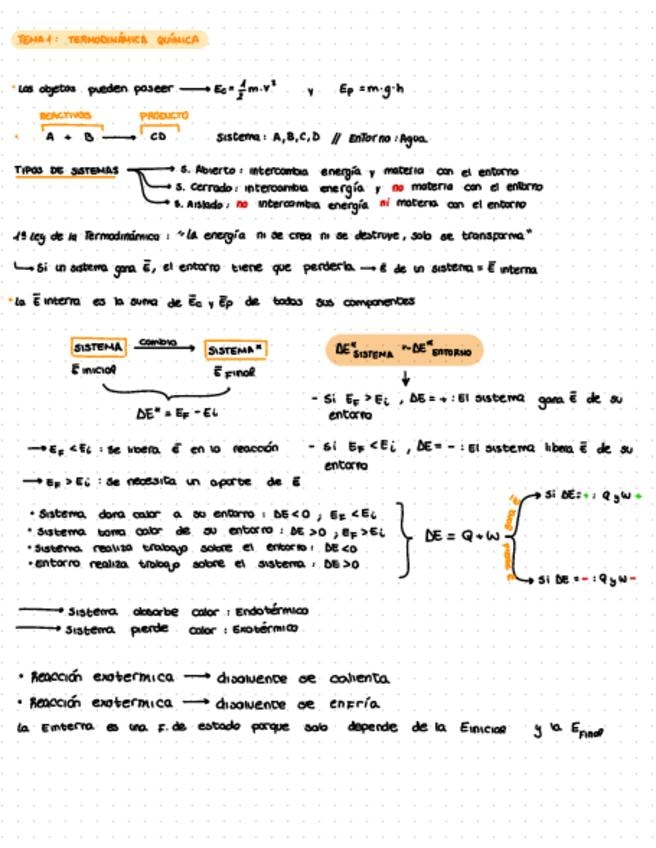 TEMA 1: TERMODINÁMICA QUÍMICA
· Los objetos pueden poseer → Ec = 1/2 m·v² y Ep = m·g·h
REACTIVOS PRODUCTO
· A + B → CD Sistema: A,B,C,D // Entorno: Agua.
TIPOS DE SISTEMAS → S. Abierto: intercambia energía y materia con el entorno
→ S. Cerrado: intercambia energía y no materia con el entorno
→ S. Aislado: no intercambia energía ni materia con el entorno
1ª Ley de la Termodinámica: "La energía ni se crea ni se destruye, solo se transforma"
↳ Si un sistema gana Ē, el entorno tiene que perderla → Ē de un sistema = Ē interna
· La Ē interna es la suma de Ēc y Ēp de todos sus componentes
SISTEMA cambio → SISTEMA*
Ē inicial Ē Final
ΔE* = EF - Ei
→ EF < Ei : Se libera Ē en la reacción
→ EF > Ei : Se necesita un aporte de Ē
ΔE* SISTEMA = -ΔE* ENTORNO
- Si EF > Ei, ΔE = + : El sistema gana Ē de su
entorno
- Si EF < Ei, ΔE = - : El sistema libera Ē de su
entorno
· Sistema dona calor a su entorno : ΔE < 0 ; EF < Ei
· Sistema toma calor de su entorno : ΔE > 0 ; EF > Ei
· Sistema realiza trabajo sobre el entorno : ΔE < 0
· entorno realiza trabajo sobre el sistema : ΔE > 0
ΔE = Q + W
Si ΔE = + : Q y W +
Si ΔE = - : Q y W -
→ Sistema absorbe calor : Endotérmico
→ Sistema pierde calor : Exotérmico
· Reacción exotermica → disolvente se calienta
· Reacción exotermica → disolvente se enfría
La Einterna es una F. de estado porque solo depende de la Einicial y la EFinal